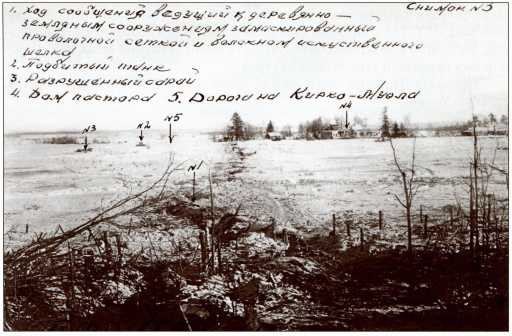 Снимок N3
1. Ход сообщения ведущий к деревянно-
земляным сооружениям замаскированный
проволочной сеткой и волокном искуственного
шелка
2. Подбитый танк
3. Разрушенный сарай
4. Дом пастора 5. Дорога на Кирко-Муола
N3
N2
N5
N4
N1